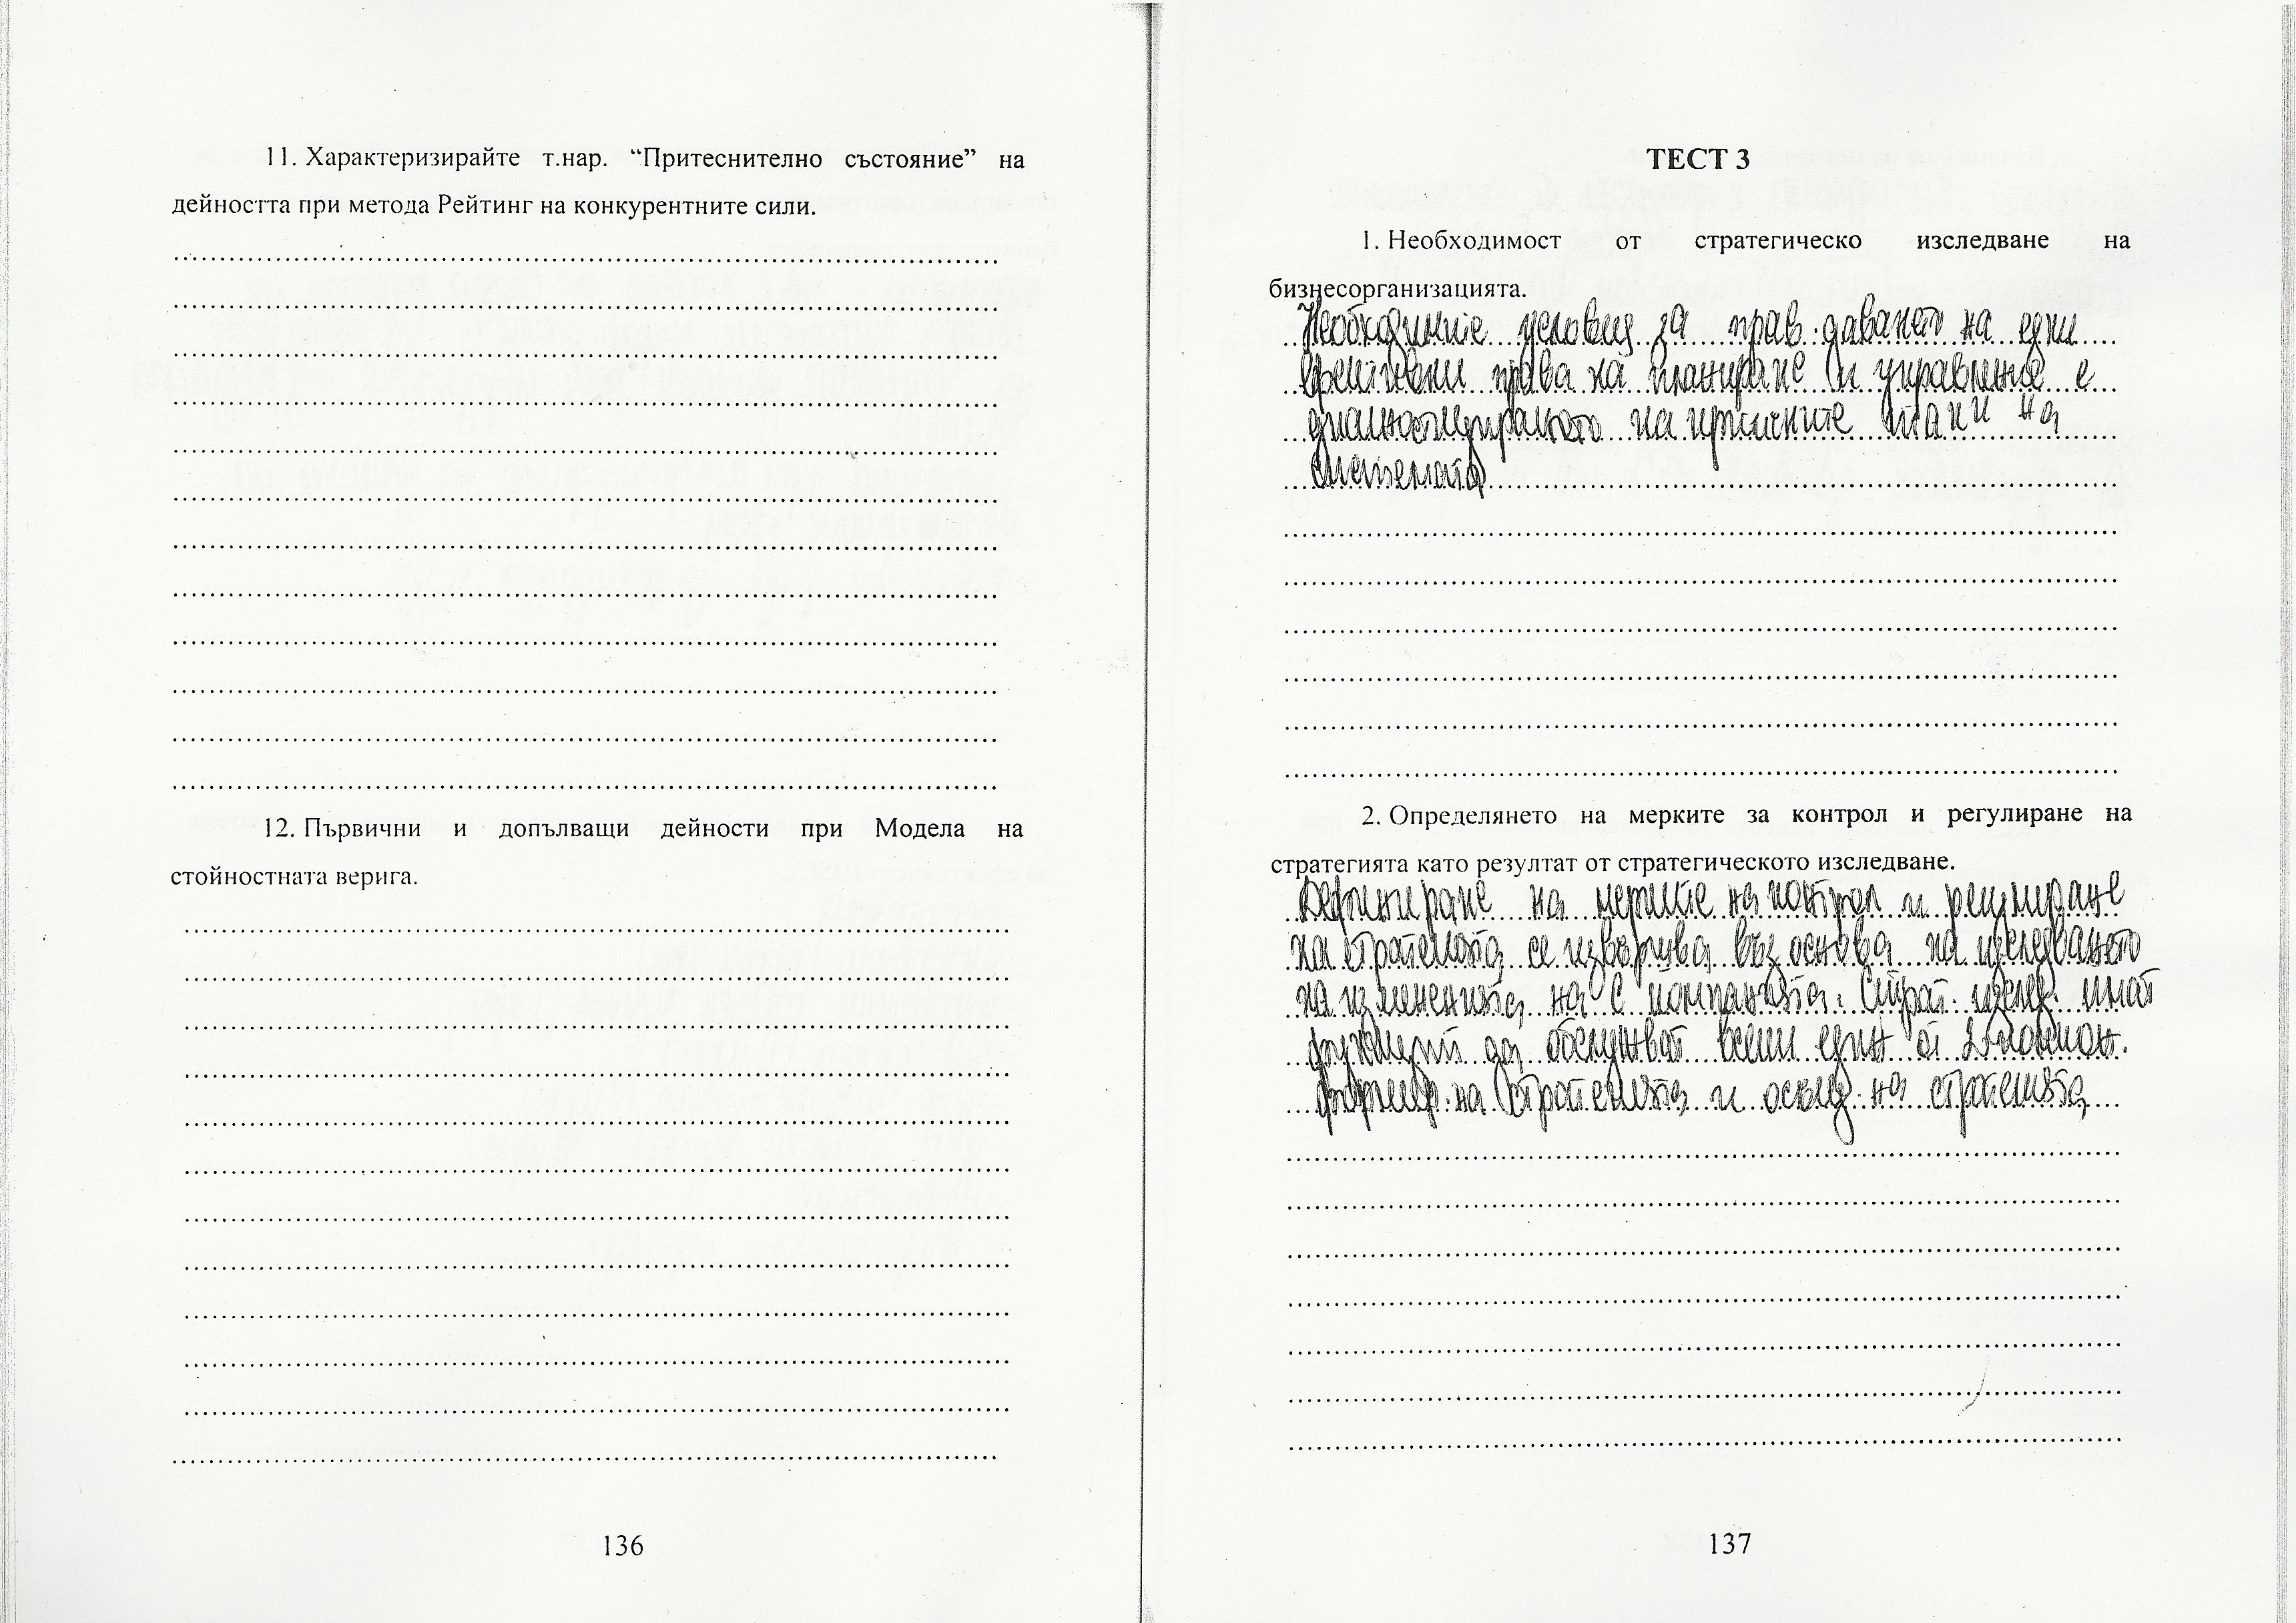 11. Характеризирайте т.нар. “Притеснително състояние” на
дейността при метода Рейтинг на конкурентните сили.
12. Първични и допълващи дейности при Модела на
стойностната верига.
136
ТЕСТ 3
1. Необходимост от стратегическо изследване на
бизнесорганизацията.
условия за на
права на планиране и управление е
на на
системата
2. Определянето на мерките за контрол и регулиране на
стратегията като резултат от стратегическото изследване.
Дефиниране на мерките на контрол и регулиране
на се извършва въз основа на изследването
на измененията на с компанията. Страт. изслед. имат
да обслужват всеки един от
на стратегията и на стратегията
137